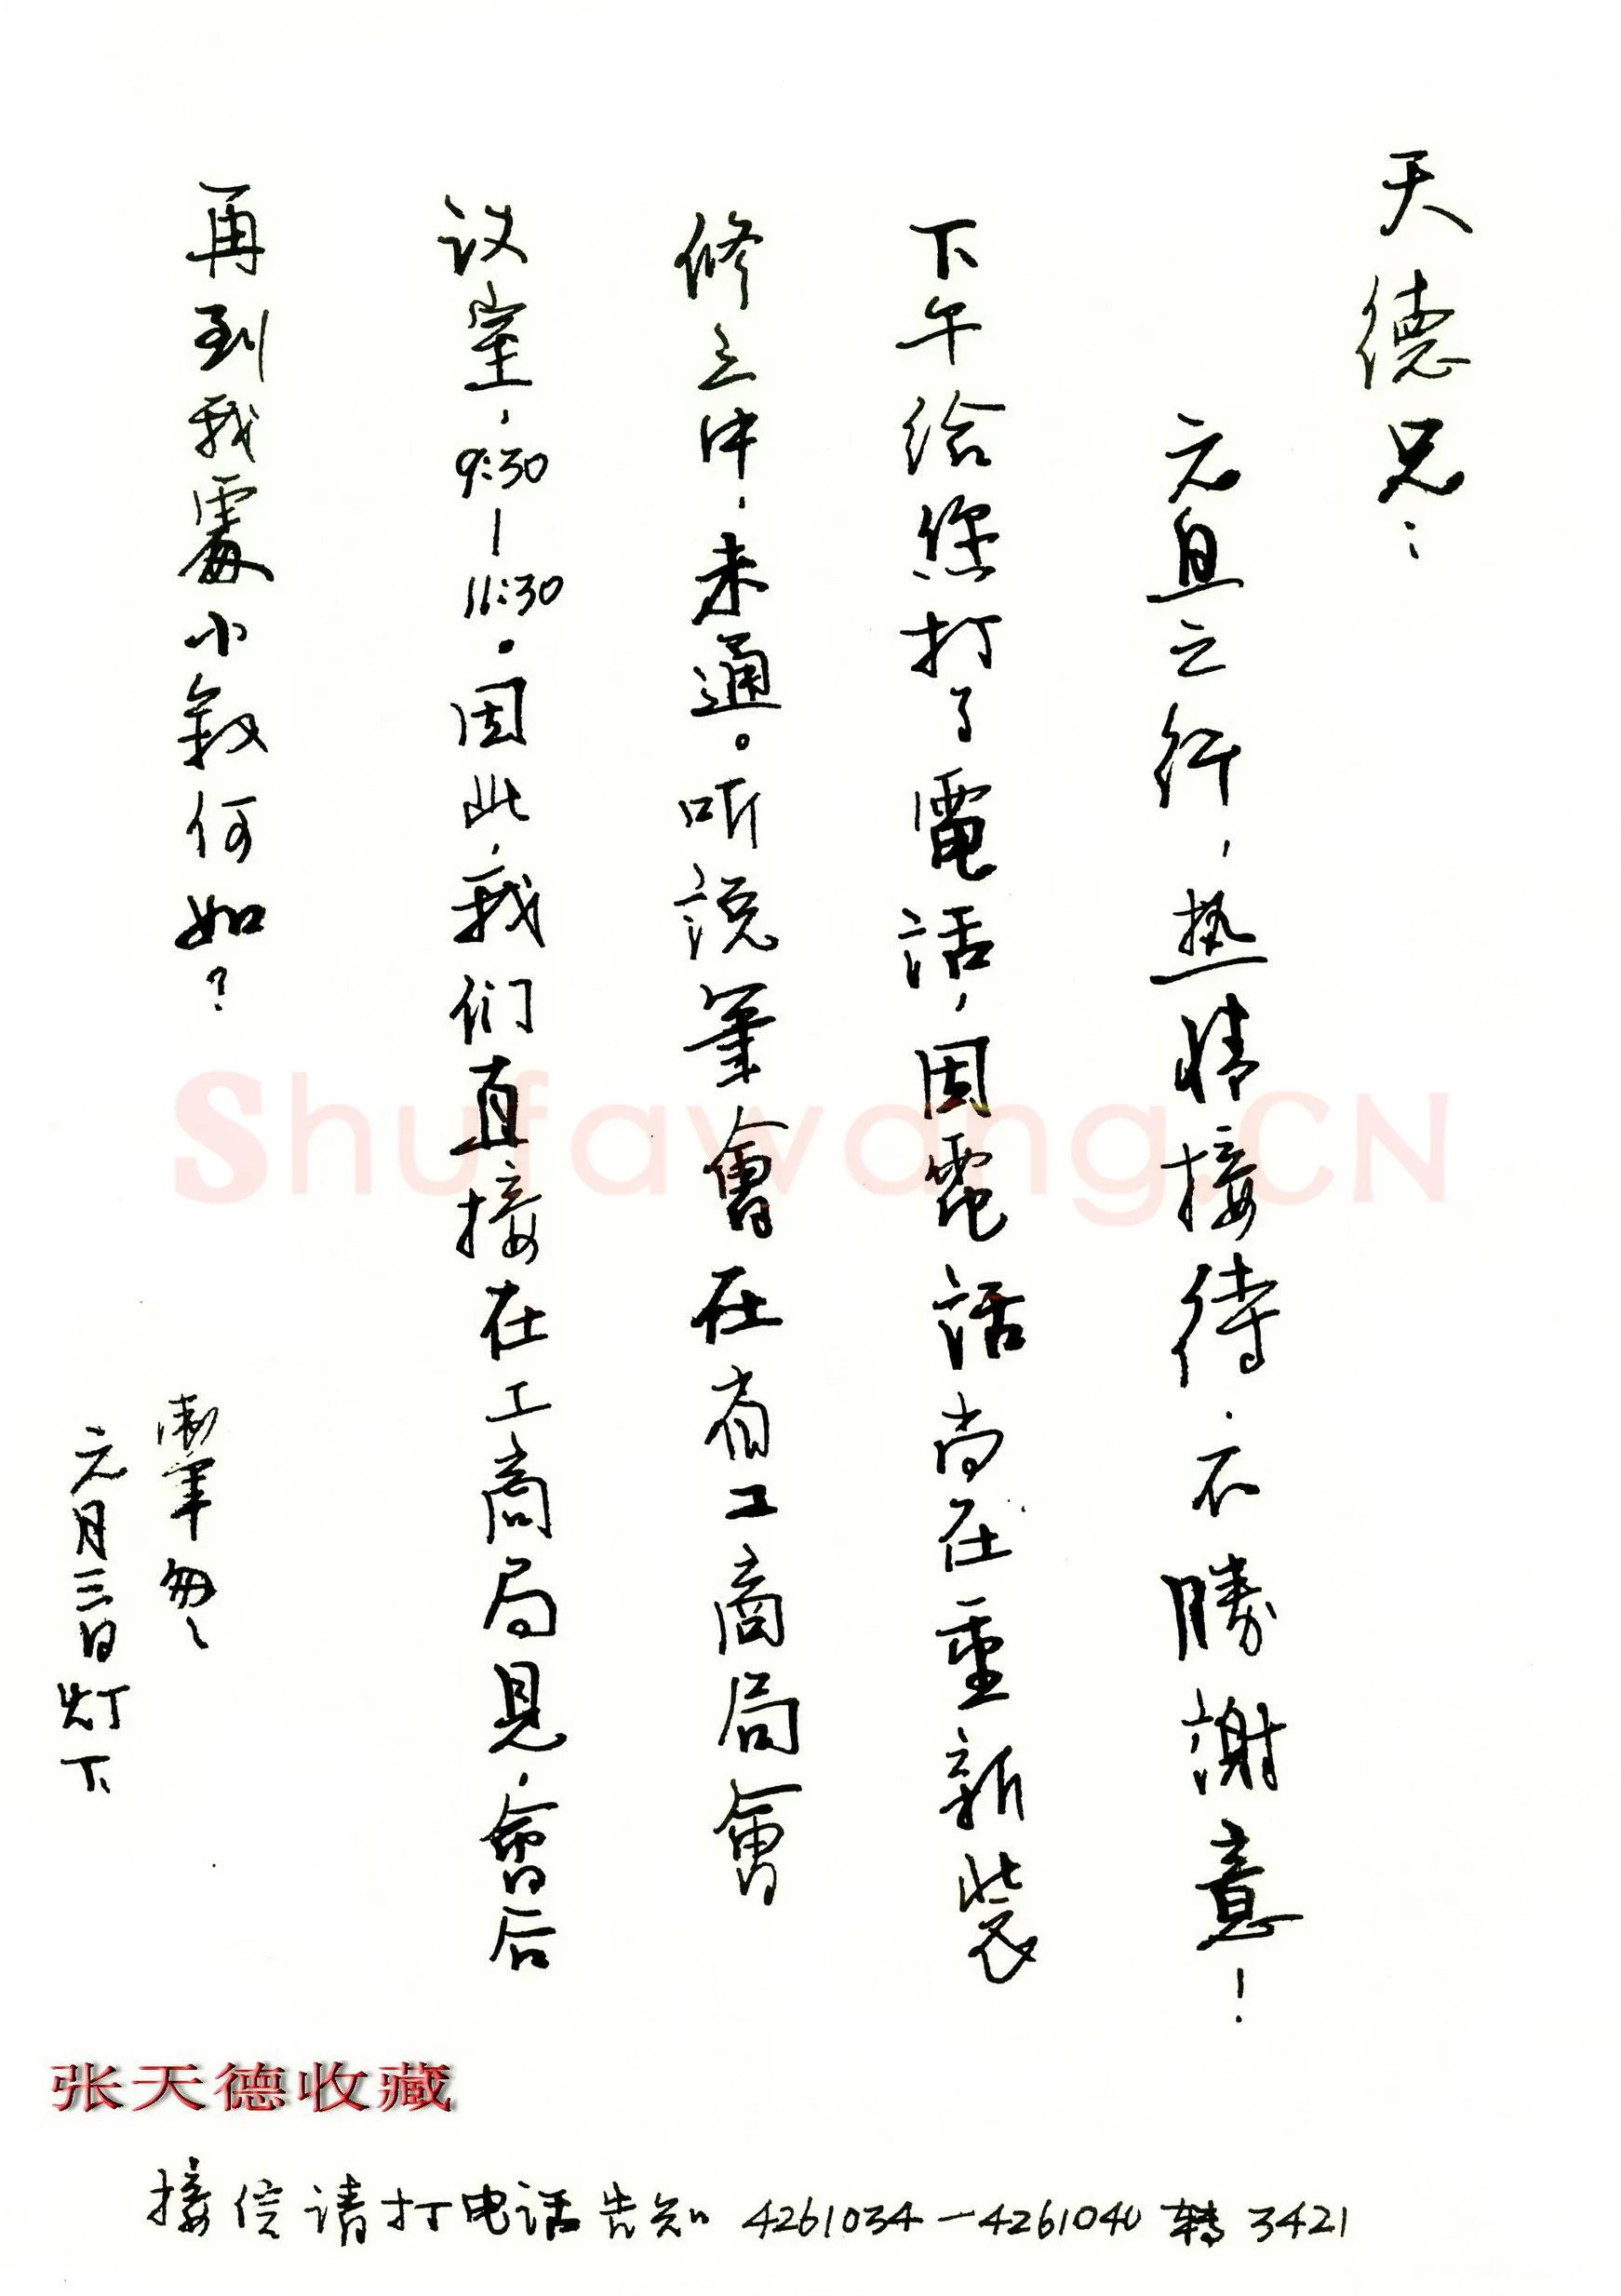 天德兄：
元旦之行，热情接待，不勝謝意！
下午给您打了電話，因電話尚在重新装
修之中，未通。听説筆會在省工商局會
议室，9:30—11:30。因此，我们直接在工商局見，會后
再到我處小叙何如？
筆匆匆
元月三日灯下
张天德收藏
接信请打电话告知 4261034—4261040 转 3421
Shufawang.CN